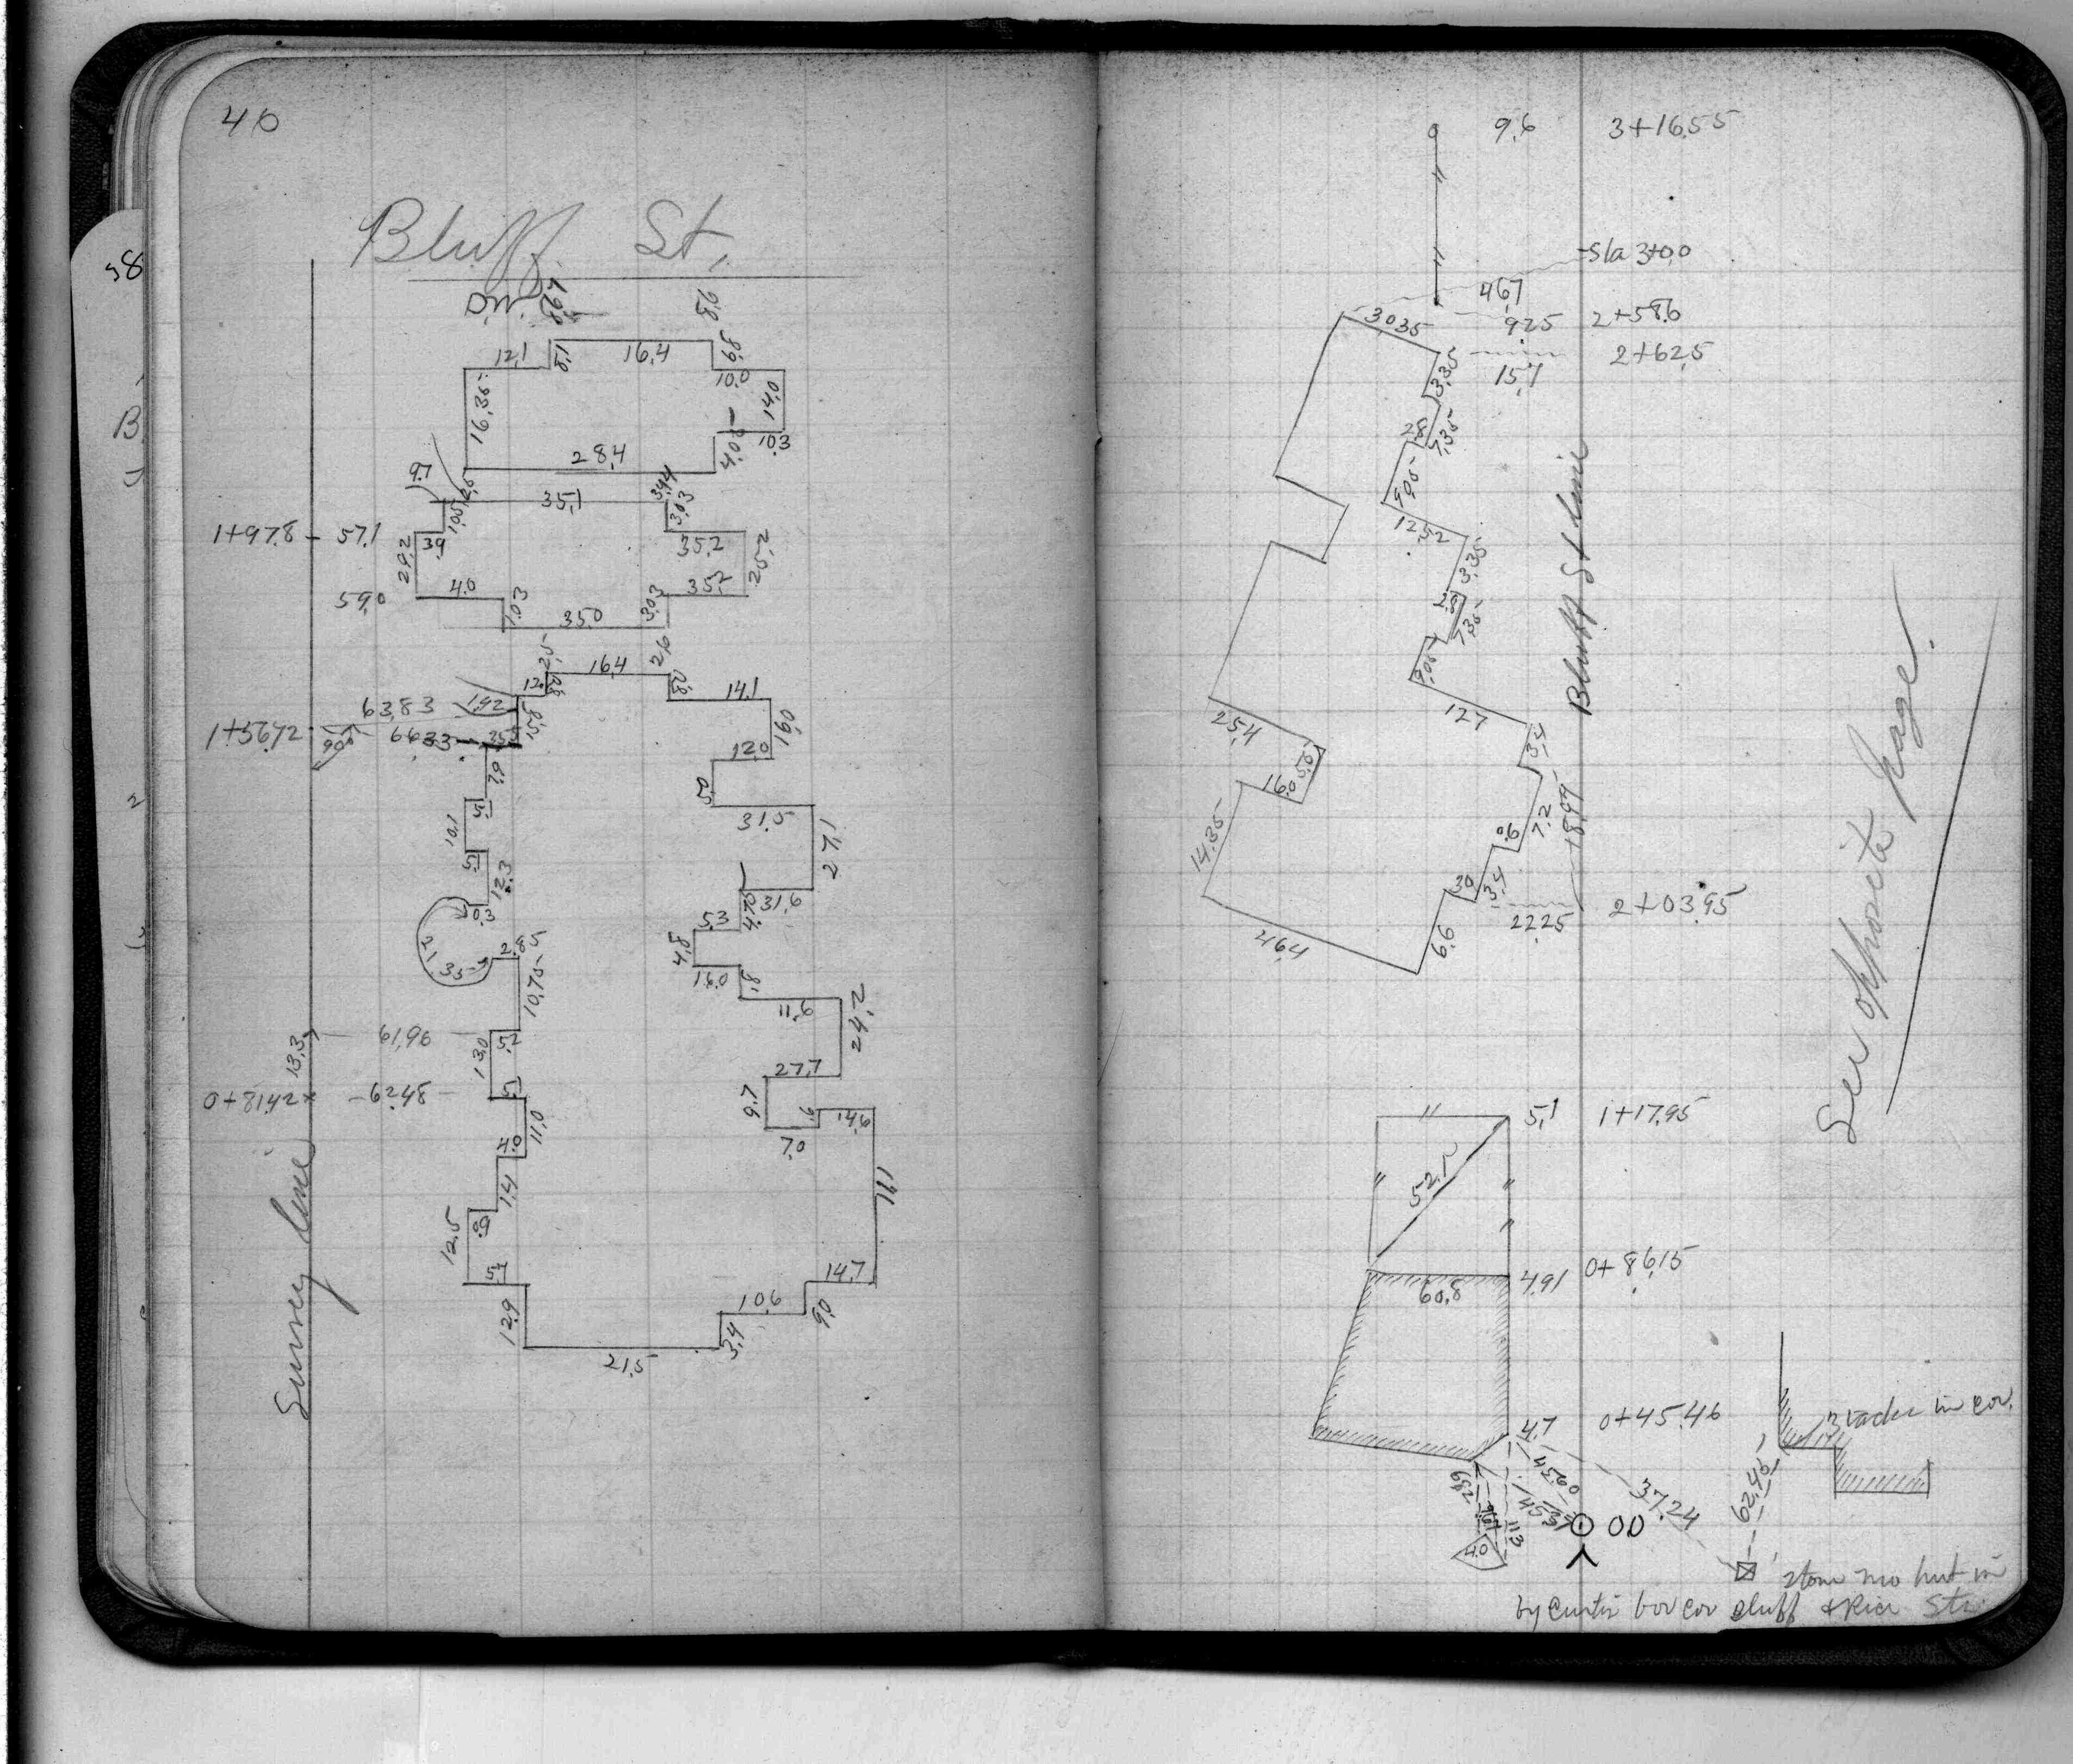 40
Bluff St,
98
12,1
8,1
16,4
6,8
10,0
14,0
16,35
28,4
4,05
10,3
9,7
35,1
34,4
3,03
1+97,8 - 57,1
39
1,05
35,2
25,2
29,2
59,0
4,0
1,03
35,0
3,03
35,2
2,5
16,4
2,6
12,
14,1
63,83
1,92
15,8
16,0
1+56,72
90°
12,0
7,9
5,0
10,1
5,1
31,5
27,1
12,3
0,3
31,6
4,75
5,3
21,35
2,85
4,8
16,0
,8
10,75
11,6
24,2
13,3
61,96
5,2
13,0
27,7
0+81,42
62,48
5,1
9,7
,6
14,6
11,0
7,0
4,0
1,4
16,1
Survey line
12,5
6,0
5,7
14,7
12,9
10,6
9,0
21,5
3,4
58
B.
2
9,6 3+16,55
Sta 3+0,0
46,7
30,35
9,25 2+58,6
2+62,5
15,7
3,35
2,8
7,35
9,05
12,52
3,35
2,8
7,35
9,05
Bluff St line
12,7
25,4
3,4
16,0
5,5
7,2
18,97
0,6
14,35
30
3,4
22,25 2+03,95
46,4
6,6
See opposite page.
5,1 1+17,95
52,1
4,91 0+86,15
60,8
4,7 0+45,46
3 tacks in cor.
45,60
45,37
37,24
62,45
11,3
4,0
00
stone mo put in
by Curtis for cor Bluff & Rice Sts